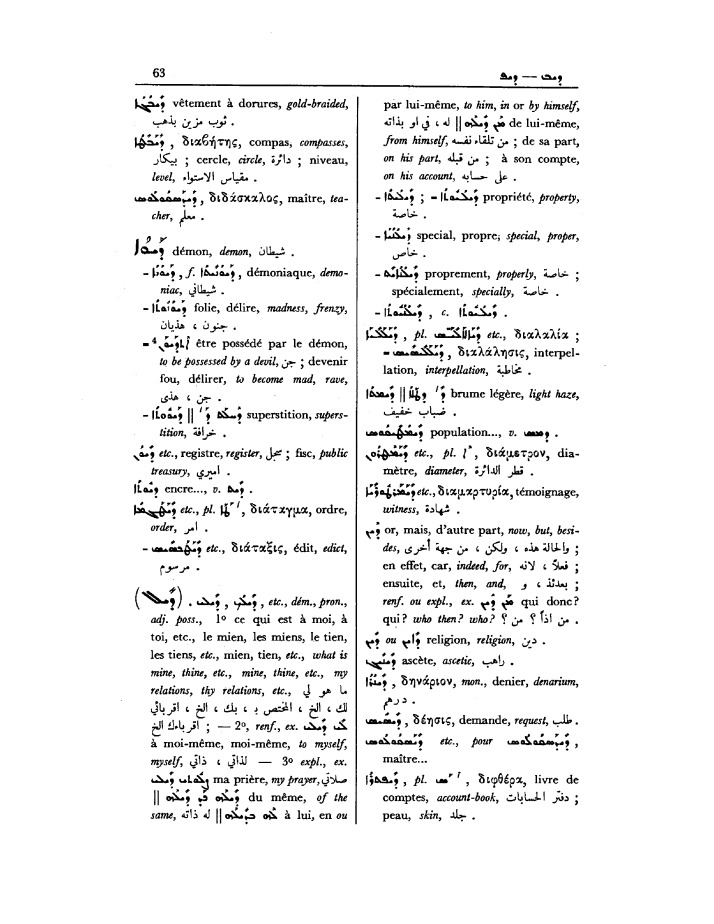 63
ܕܝܒ — ܕܝܦ
vêtement à dorures, gold-braided,
ثوب مزين بذهب .
, διαβήτης, compas, compasses,
بيكار ; cercle, circle, دائرة ; niveau,
level, مقياس الاستواء .
, διδάσκαλος, maître, tea-
cher, معلم .
ܕܝܘܐ démon, demon, شيطان .
- ܕܝܘܢܐ , f. ܕܝܘܢܬܐ , démoniaque, demo-
niac, شيطاني .
- folie, délire, madness, frenzy,
جنون ، هذيان .
- être possédé par le démon,
to be possessed by a devil, جن ; devenir
fou, délirer, to become mad, rave,
جن ، هذى .
- || superstition, supers-
tition, خرافة .
etc., registre, register, سجل ; fisc, public
treasury, اميري .
ܕܝܘܬܐ encre..., v. .
etc., pl. , διάταγμα, ordre,
order, امر .
- etc., διάταξις, édit, edict,
مرسوم .
(ܕܝܠ) , ܕܝܠܝ , ܕܝܠܟ , etc., dém., pron.,
adj. poss., 1º ce qui est à moi, à
toi, etc., le mien, les miens, le tien,
les tiens, etc., mien, tien, etc., what is
mine, thine, etc., mine, thine, etc., my
relations, thy relations, etc., ما هو لي
لك ، الخ ، المختص بـ ، بك ، الخ ، اقربائي
اقرباءك الخ ; — 2º, renf., ex. ܠܝ ܕܝܠܝ
à moi-même, moi-même, to myself,
myself, لذاتي ، ذاتي — 3º expl., ex.
ܨܠܘܬܝ ܕܝܠܝ ma prière, my prayer, صلاتي
|| ܕܝܠܗ ܟܕ ܕܝܠܗ du même, of the
same, له ذاته || à lui, en ou
par lui-même, to him, in or by himself,
له ، في او بذاته || ܡܢ ܕܝܠܗ de lui-même,
from himself, من تلقاء نفسه ; de sa part,
on his part, من قبله ; à son compte,
on his account, على حسابه .
- ; - ܕܝܠܝܘܬܐ propriété, property,
خاصة .
- ܕܝܠܢܝܐ special, propre, special, proper,
خاص .
- ܕܝܠܢܐܝܬ proprement, properly, خاصة ;
spécialement, specially, خاصة .
- , c. .
, pl. etc., διαλαλία ;
- , διαλάλησις, interpel-
lation, interpellation, مخاطبة .
|| brume légère, light haze,
ضباب خفيف .
population..., v. .
etc., pl. , διάμετρον, dia-
mètre, diameter, قطر الدائرة .
etc., διαμαρτυρία, témoignage,
witness, شهادة .
ܕܝܢ or, mais, d'autre part, now, but, besi-
des, والحالة هذه ، ولكن ، من جهة أخرى ;
en effet, car, indeed, for, فعلاً ، لانه ;
ensuite, et, then, and, بعدئذ ، و ;
renf. ou expl., ex. ܡܢ ܕܝܢ qui donc?
qui? who then? who? من اذاً ؟ من ؟ .
ܕܝܢ ou religion, religion, دين .
ascète, ascetic, راهب .
ܕܝܢܪܐ , δηνάριον, mon., denier, denarium,
درهم .
, δέησις, demande, request, طلب .
etc., pour ,
maître...
ܕܝܦܬܪܐ , pl. , διφθέρα, livre de
comptes, account-book, دفتر الحسابات ;
peau, skin, جلد .